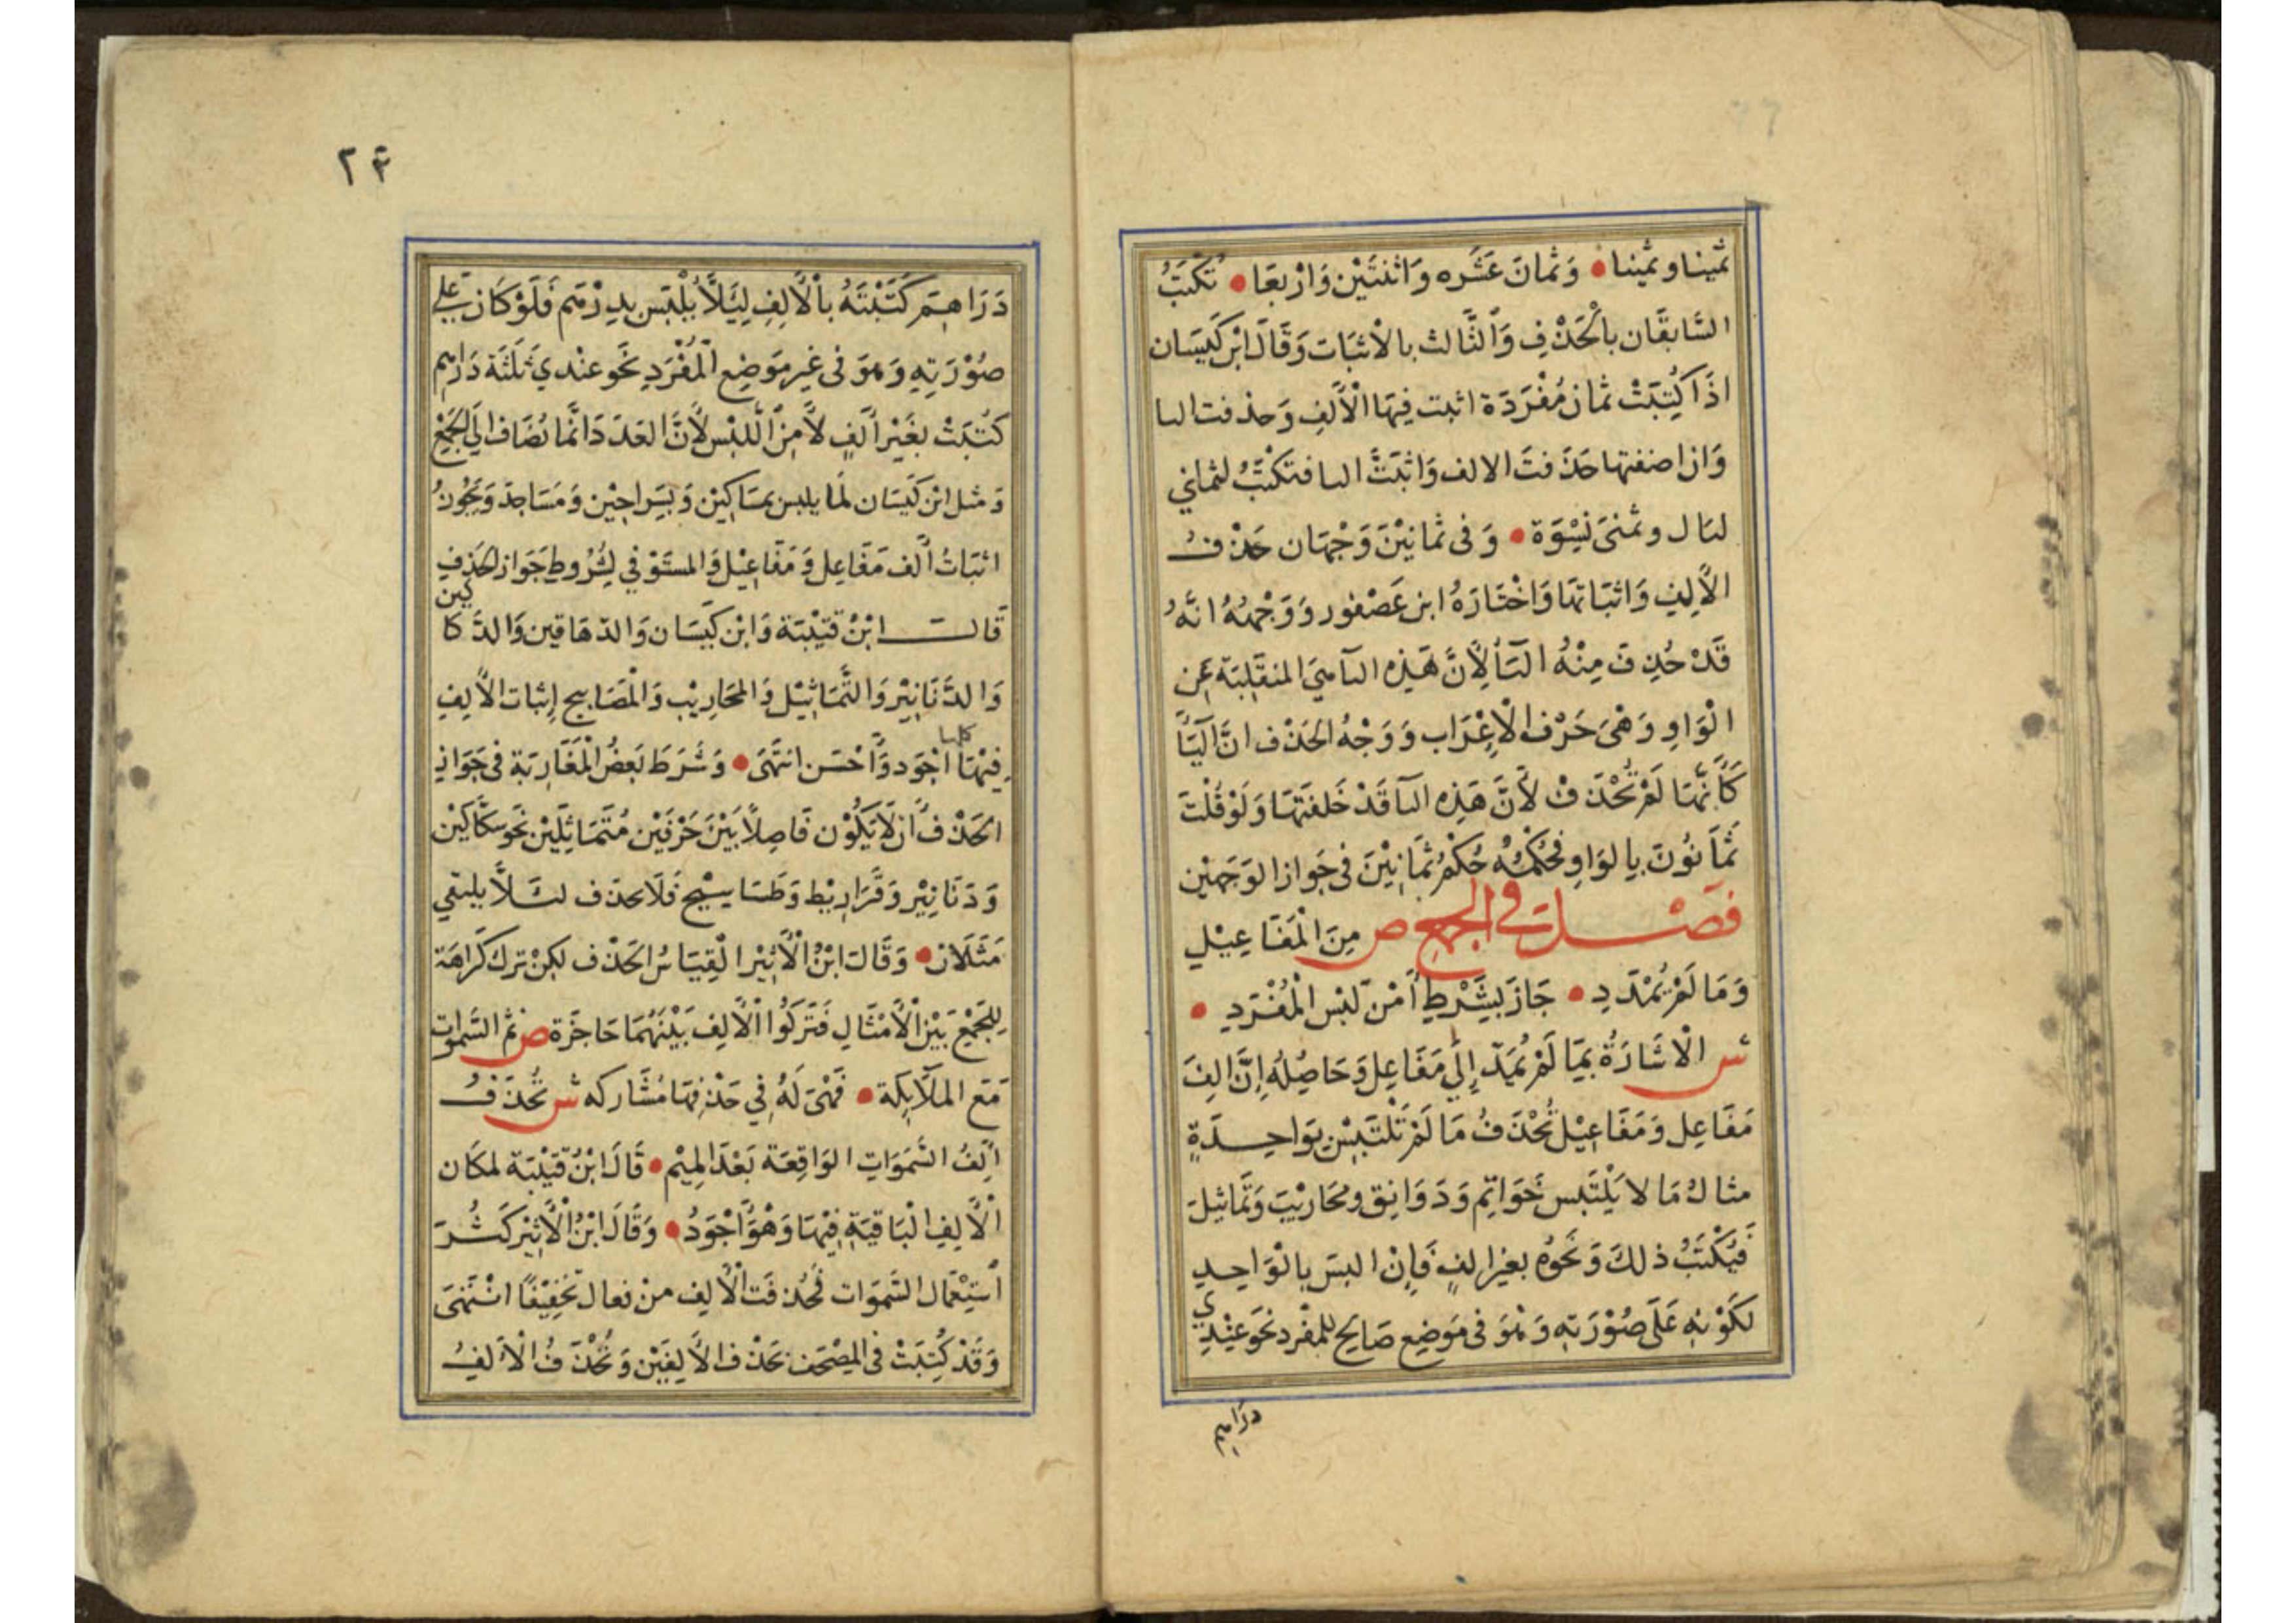 ثمينا وثمينا • وَثمانَ عَشَره وَاثنتَيْن وَارْبعَا • تُكتَبُ
السَّابقَان بالْحَذْفِ وَالثَّالث بالاثبَات وَقَالَ ابْن كَيسَان
اذَا كُتِبَتْ ثمان مُفْرَدَة اثبت فِيهَا الْأَلِف وَحذفت اليا
وَان اضفتها حَذَفتَ الالف وَاثبَتَّ اليا فتكْتبُ لثماني
ليَال وثمنىَ نِسْوَة • وَفى ثمانِيْنَ وَجْهَان حَذْفُ
الأَلِفِ وَاثبَاتهَا وَاخْتَارَهُ ابن عَصْفور وَوَجْهُهُ انَّهُ
قَدْ حُذِفَ مِنْهُ اليَأ لِأَنَّ هَذِهِ اليآ هِيَ المنقَلِبَة عَن
الْوَاوِ وَهْىَ حَرْف الْاِعْرَاب وَوَجْهُ الحَذْف انَّ اليَأَ
كَأَنَّهَا لَمْ تُحْذَفْ لأَنَّ هَذِهِ اليآ قَدْ خَلفَتهَا وَلَوْ قُلْتَ
ثَمَانُوْنَ بِالوَاوِ فحُكْمُهُ حُكْمُ ثمَانِيْنَ فى جَواز الوَجهَيْن
فصْل في الجمع ص مِنَ الْمَفَاعِيْلِ
وَمَا لَمْ يُمْدَدِ • جَازَ بشَرْطِ أَمْنِ لَبْسِ الْمُفْرَدِ •
ش الْاشَارَةُ بمَا لَمْ يُمَدّ إِلَى مَفَاعِل وَحَاصِلُه إِنَّ الِفَ
مَفَاعِل وَمَفَاعِيْل تُحْذَفُ مَا لَمْ تَلْتَبِسْ بوَاحِدَةٍ
مثالُ مَا لا يَلْتَبس خَوَاتِم وَدَوَانِق ومحَاريْبَ وَتَماثيْلَ
فيُكْتَبُ ذلكَ وَنَحْوُه بغيرالفٍ فَإِنْ البسَ بالْوَاحِدِ
لكَوْنِه عَلَى صُوْرَته وَهْوَ فى مَوضِع صَالِح للمفْرد نحَو عنْدِي
دَرَاهِم
٢٤
دَرَاهِمَ كَتَبْتَهُ بالأَلِفِ لِئَلاَّ يُلْبَس بدِرْهَم فَلَوْ كَانَ عَلى
صُوْرَتِهِ وَهوَ فى غيرمَوضِع الْمُفْرَدِ نحَو عنْدي ثلثَة دَرَاهم
كتُبَتْ بغَيْر أَلِفٍ لأَمِنِ اللَّبْس لأَنَّ العَدَدَ انَّمَا يُضَاف الَى الجَمْعِ
وَمثل ابْن كَيسَان لمَا يلبس بمسَاكِيْن وَبسَراجيْن وَمَسَاجدَ وَيَجُوزُ
اثبَاتُ أَلف مَفَاعِل وَمَفَاعِيْل وَالمستَوْفي لِشُرُوطِ جَواز الحَذفِ
قَالَ ابْنُ قتيْبَة وَابْن كَيسَان وَالدّهَاقين وَالدَّكَاكين
وَالدَّنَانِيْر وَالتَّمَاثِيْل وَالمحَارِيْب وَالْمَصَابيح إِثبَات الأَلِفِ
فِيْهَا كلها اجْوَد وَأَحْسَن انتَهَى • وَشَرَط بَعضُ الْمَغَارِبَة فى جَوَاز
الحَذْف أَن لَا يَكُوْن فَاصِلاً بَيْنَ حَرْفَيْن مُتَمَاثِلَيْن نحَو سكَّاكِيْن
وَدَنَانِيْر وَقَرَارِيْط وَطسَاسيْج فَلَا يحذَف لئَلاَّ يلتقي
مَثلَان • وَقَالَ ابْنُ الْأَثِيْر القِيَاسُ الحَذْف لكِنْ ترك كَرَاهَة
للجَمْع بَيْنَ الأَمْثَالِ فَتَرَكُوا الْأَلِف بَيْنَهُمَا حَاجَزَة ص ثمَّ السَّموات
مَعَ المَلآئِكَة • فَهْىَ لَهُ فِي حَذْفِهَا مُشَاركه ش تُحْذَفُ
أَلِفُ السَّمَوَاتِ الوَاقِعَة بَعْدَ المِيْم • قَالَ ابْنُ قتَيْبَة لمكَان
الْأَلِفِ الْبَاقيَةِ فِيْهَا وَهْوَ أَجْوَدُ • وَقَالَ ابْنُ الْأَثِيْر كَثُرَ
أسْتِعْمَال السَّمَوَات فَحُذفَت الْأَلِف منْ فعال تَخفِيْفًا انْتَهَىَ
وَقَدْ كُتِبَتْ فى المصْحَف بحَذْف الأَلِفَيْن وَتُحْذَفُ الْأَلِفُ